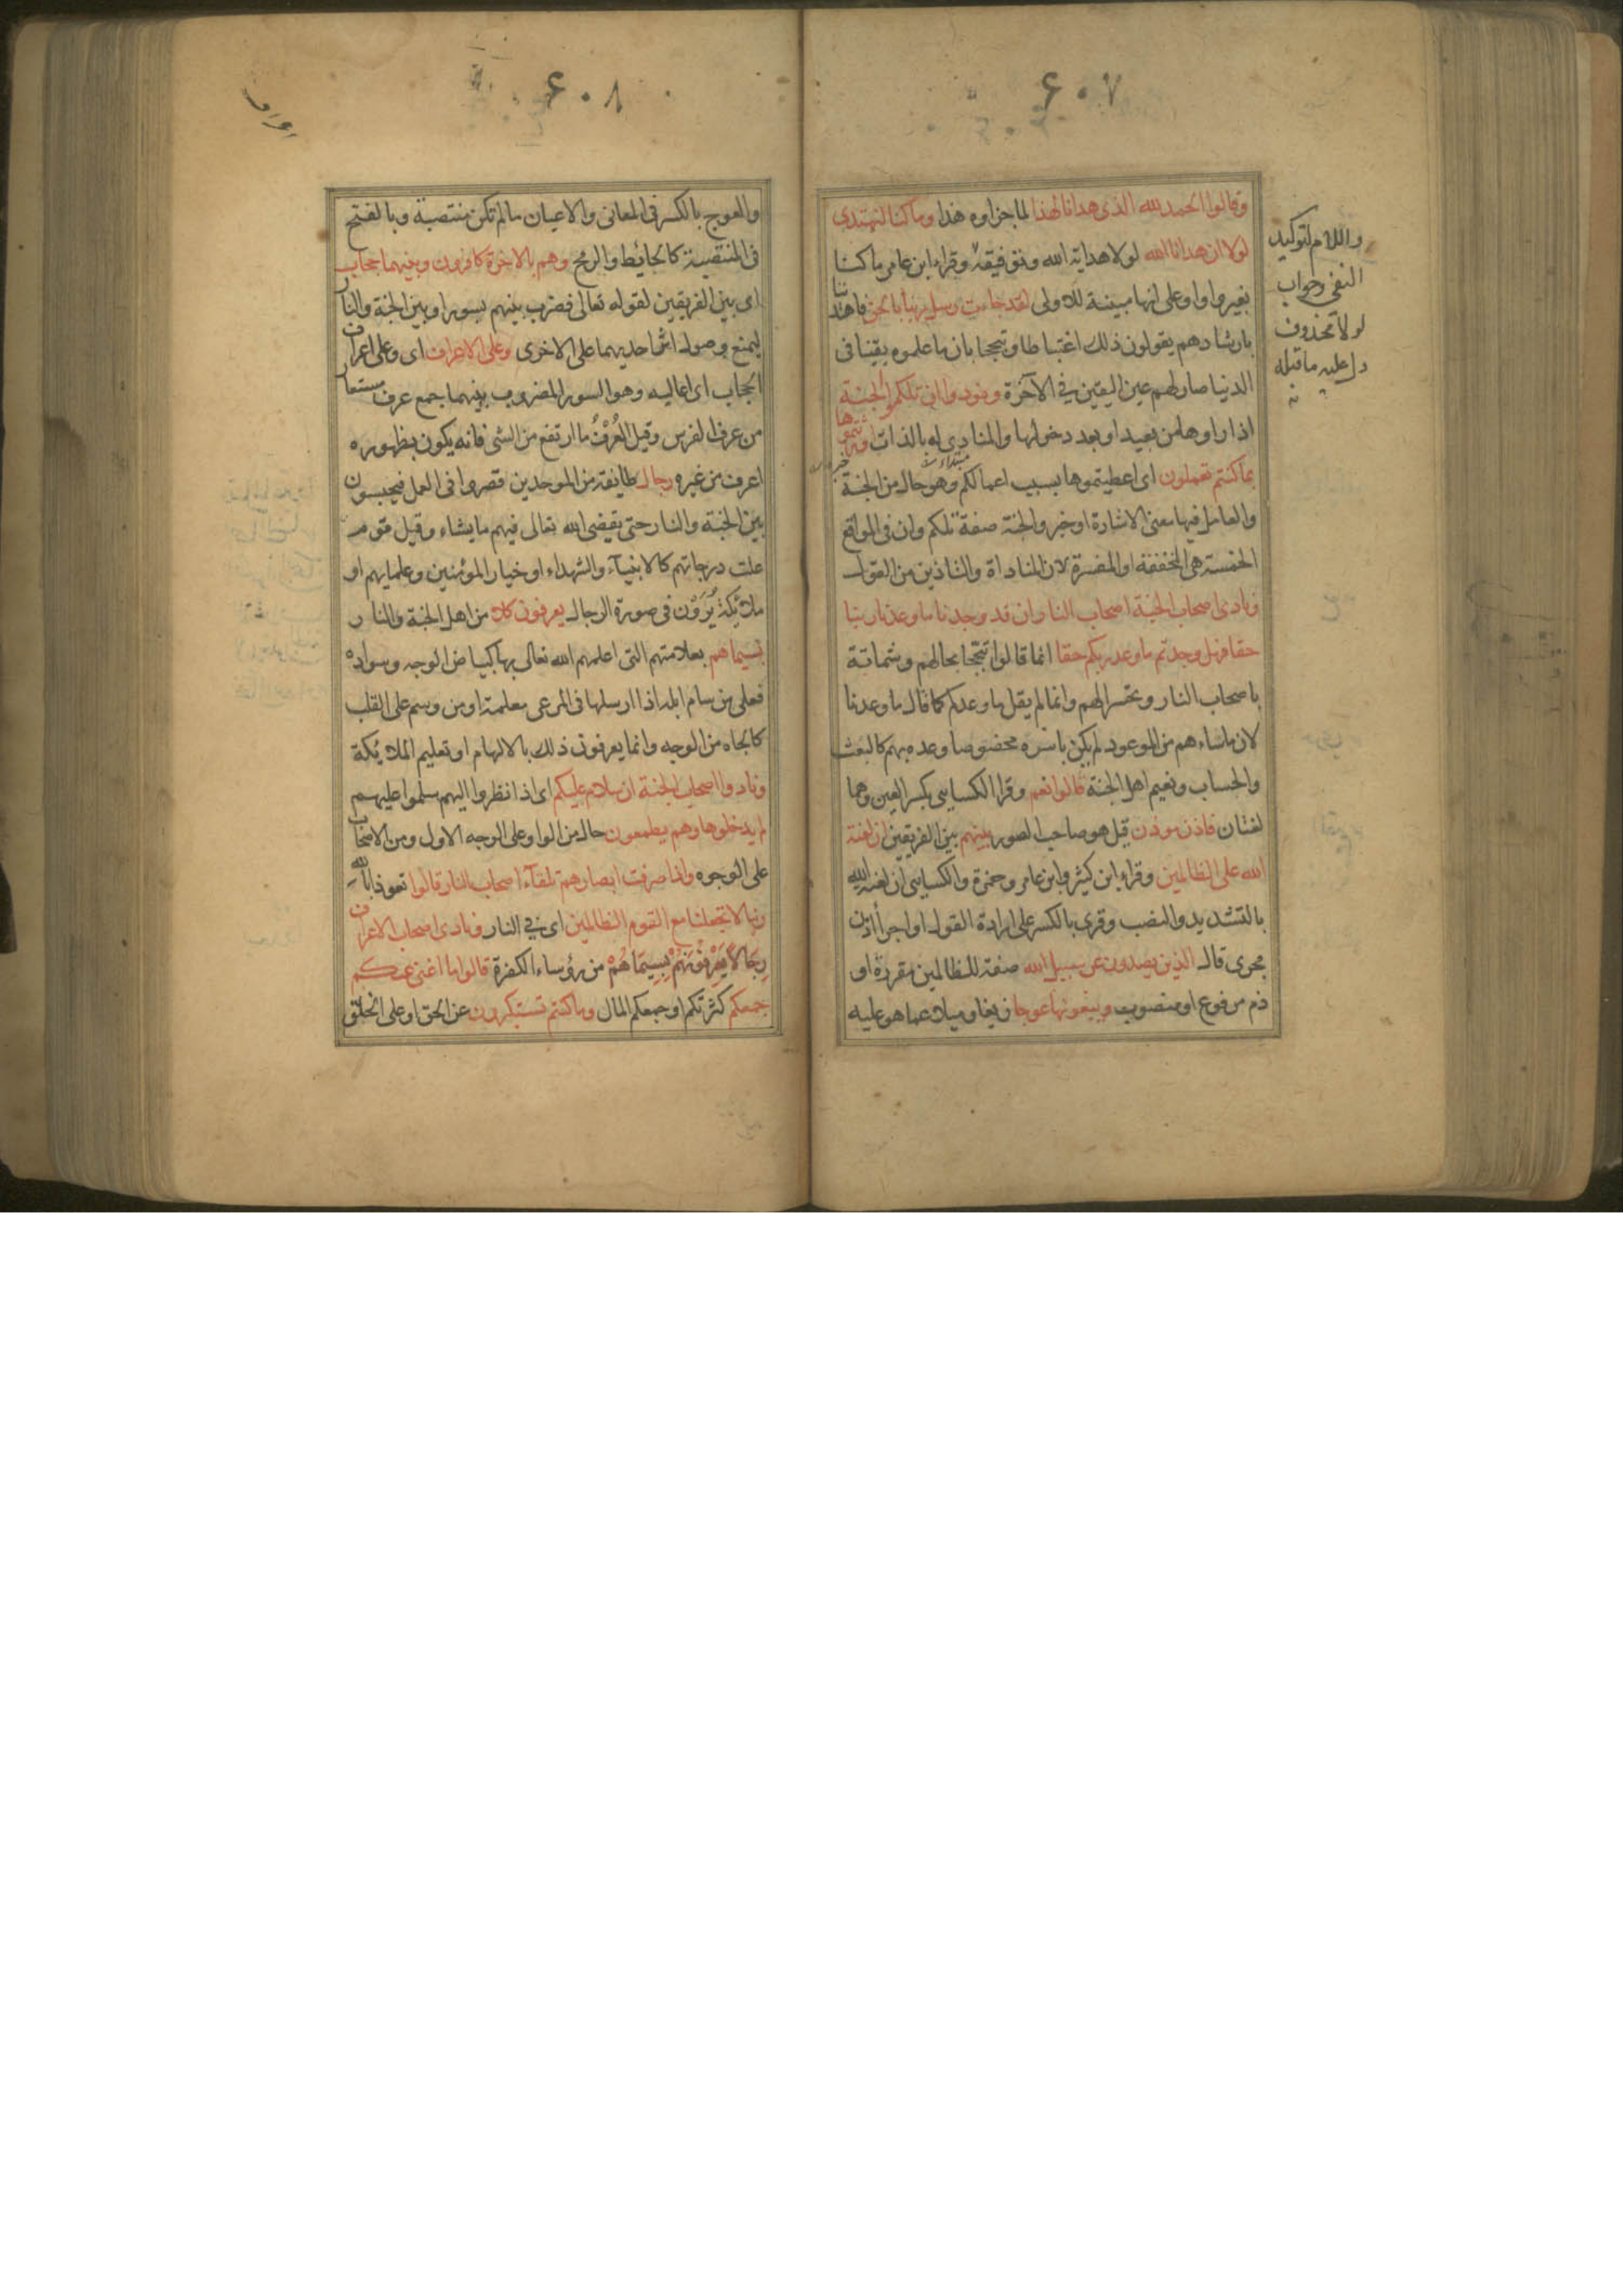 ۶۰۷
وقالوا الحمد لله الذی هدانا لهذا لما جزاوه هذا وما کنا لنهتدی
لولا ان هدانا الله لولا هدایة الله وتوفیقه وقراء ابن عامر ما کنا
بغیر واو علی انها مبینة للاولی لقد جاءت رسل ربنا بالحق فاهتدینا
بارشادهم یقولون ذلک اغتباطا وتبجحا بان ما علموه یقینا فی
الدنیا صار لهم عین الیقین فی الآخرة ونودوا ان تلکمو الجنة
اذا راوها من بعید او بعد دخولها والمنادی له بالذات اورثتموها
بما کنتم تعملون ای اعطیتموها بسبب اعمالکم وهو حال من الجنة
مبتداء خبر
والعامل فیها معنی الاشارة او خبر والجنة صفة تلکم وان فی المواقع
الخمسة هی المخففة او المفسرة لان المناداة والتاذین من القول
ونادی اصحاب الجنة اصحاب النار ان قد وجدنا ما وعدنا ربنا
حقا فهل وجدتم ما وعد ربکم حقا انما قالوا تبجحا بحالهم وشماتة
باصحاب النار وتحسرا لهم وانما لم یقل ما وعدکم کما قال ما وعدنا
لان ما ساءهم من الموعود لم یکن باسره مخصوصا وعده بهم کالبعث
والحساب ونعیم اهل الجنة قالوا نعم وقرا الکسایی بکسر العین وهما
لغتان فاذن موذن قیل هو صاحب الصور بینهم بین الفریقین ان لعنة
الله علی الظالمین وقراء ابن کثیر وابن عامر وحمزة والکسایی ان لعنة الله
بالتشدید والنصب وقری بالکسر علی ارادة القول او اجرا اذن
مجری قال الذین یصدون عن سبیل الله صفة للظالمین مقررة او
ذم مرفوع او منصوب ویبغونها عوجا زیغا ومیلا عما هو علیه
واللام لتوکید
النفی وجواب
لولا محذوف
دل علیه ما قبله
۶۰۸
اعراف
والعوج بالکسر فی المعانی والاعیان ما لم تکن منتصبة وبالفتح
فی المنتصبة کالحائط والرمح وهم بالاخرة کافرون وبینهما حجاب
ای بین الفریقین لقوله تعالی فضرب بینهم بسور او بین الجنة والنار
لیمنع وصول اثر احدیهما علی الاخری وعلی الاعراف ای وعلی اعراف
الحجاب ای اعالیه وهو السور المضروب بینهما جمع عرف مستعار
من عرف الفرس وقیل العُرْفُ ما ارتفع من الشی فانه یکون بظهوره
اعرف من غیره رجال طایفة من الموحدین قصروا فی العمل فیحبسون
بین الجنة والنار حتی یقضی الله تعالی فیهم ما یشاء وقیل قوم
علت درجاتهم کالانبیاء والشهداء او خیار المؤمنین وعلمایهم او
ملائکة یُرَوْن فی صورة الرجال یعرفون کلا من اهل الجنة والنار
بسیماهم بعلامتهم التی اعلمهم الله تعالی بها کبیاض الوجه وسواده
فعلی من سام ابله اذا ارسلها فی المرعی معلمة او من وسم علی القلب
کالجاه من الوجه وانما یعرفون ذلک بالالهام او تعلیم الملائکة
ونادوا اصحاب الجنة ان سلام علیکم ای اذا نظروا الیهم سلموا علیهم
لم یدخلوها وهم یطمعون حال من الواو علی الوجه الاول ومن الاصحاب
علی الوجوه واذا صرفت ابصارهم تلقآء اصحاب النار قالوا تعوذا بالله
ربنا لا تجعلنا مع القوم الظالمین ای فی النار ونادی اصحاب الاعراف
رِجَالًا یَعْرِفُونَهُمْ بِسِیمَاهُمْ من رؤساء الکفرة قالوا ما اغنی عنکم
جمعکم کثرتکم او جمعکم المال وما کنتم تستکبرون عن الحق او علی الخلق